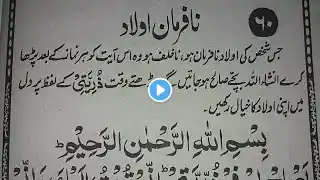 ٦٠
نافرمان اولاد
جس شخص کی اولاد نافرمان ہو، ناخلف ہو وہ اس آیت کو ہر نماز کے بعد پڑھا
کرے انشاء اللہ بچے صالح ہو جائیں گے پڑھتے وقت ذُرِّیَّتِیْ کے لفظ پر دل
میں اپنی اولاد کا خیال رکھیں۔
بِسْمِ اللهِ الرَّحْمٰنِ الرَّحِيْمِ